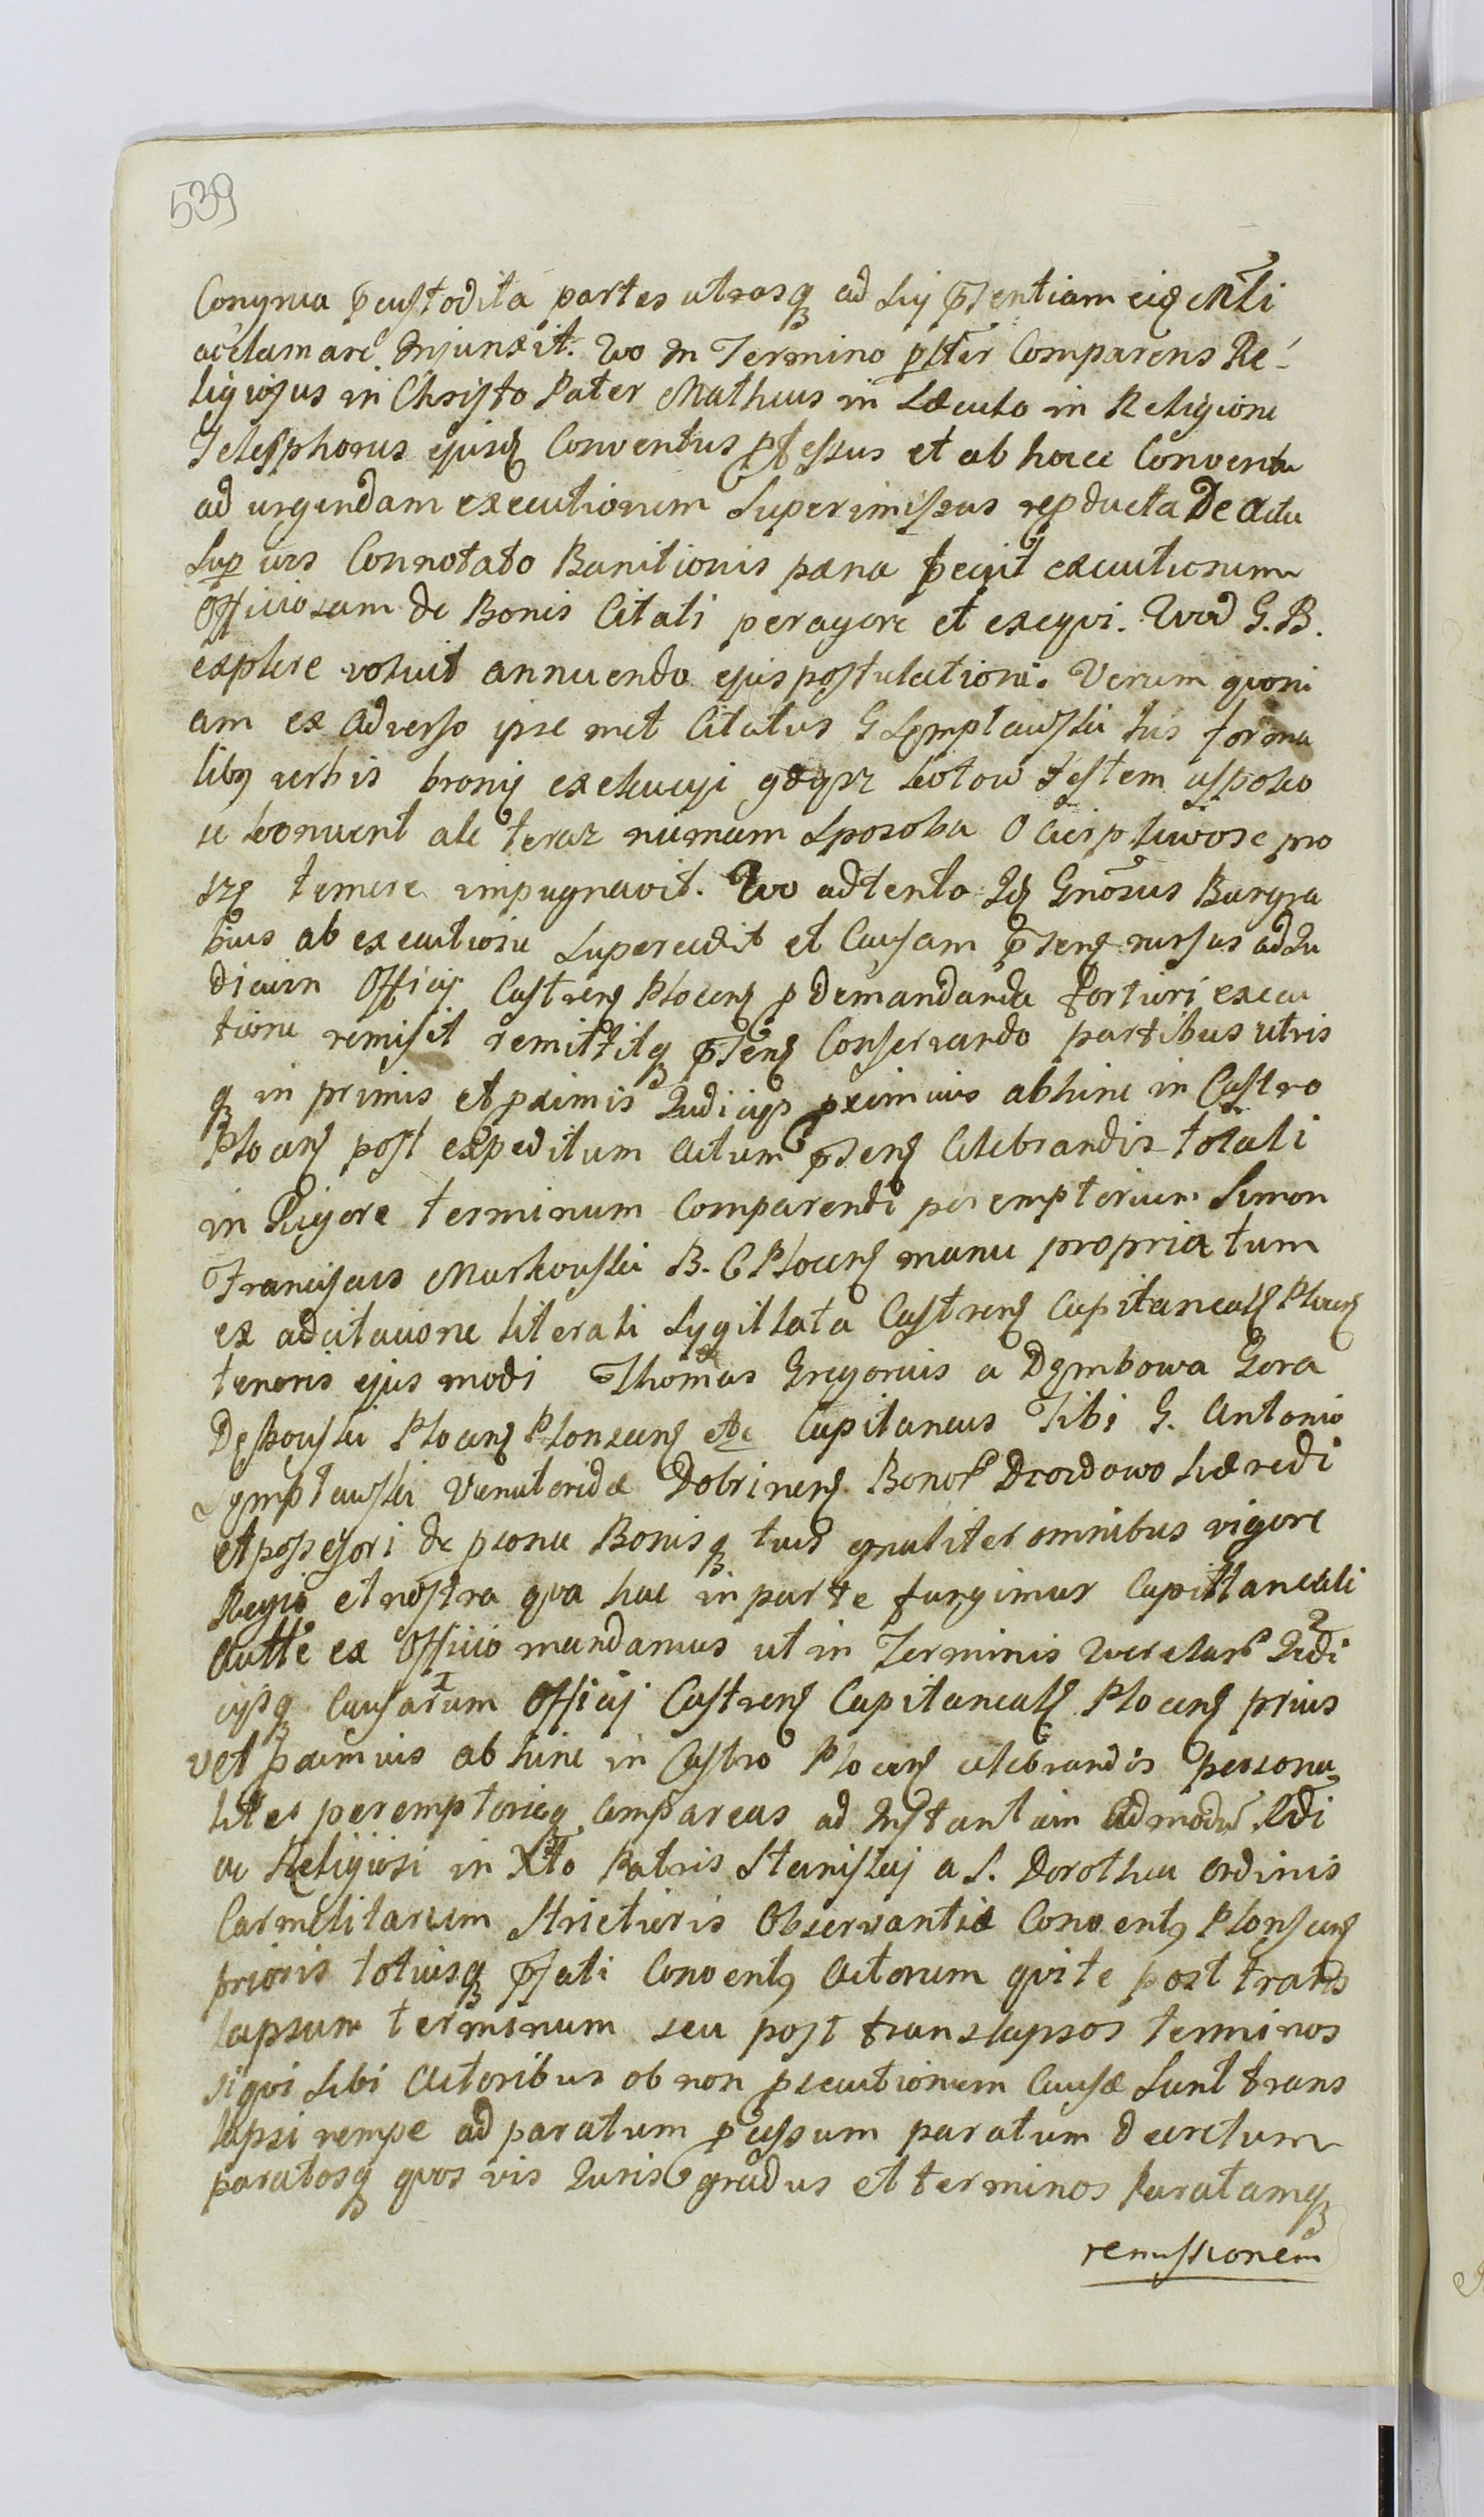 539
Congrua p̄custodita partes utrasq ad sui p̄sentiam eid Mti
acclamare Injunxit. Quo in Termino pltter Comparens Re-
ligiosus in Christo Pater Matheus in Sæculo in Religione
Telesphorus ejusd Conventus pfessus et ab hocce Conventu
ad urgendam executionem superimissus repducta De actu
Sup ius Connotato Banitionis pæna petiit executionem
Officiosam de Bonis Citati peragere et exeqvi. Qvod G. B.
explere voluit annuendo ejus postulationi. Verum qvoni
am ex Adverso ipse met Citatus G Sęmpławski his forma
libg verbis bronię exekucyi gdysz kotow jestem uspoko
ic konwent ale teraz niemam sposobu O cierpliwosc pro
szę temere impugnavit. Qvo adtento Id Gnosus Burgra
bius ab executione supercedit et Causam p̄sens rursus ad Iu
dicium Officij Castrens Plocens p demandanda fortiori execu
tione remisit remittitq p̄sens Conservando partibus utris
q in primis et pximis Iudicijs pximius abhinc in Castro
Plocens post expeditum actum p̄sens Celebrandis totali
in Rigore terminum Comparendi peremptorium Simon
Franciscus Markowski B. C Plocens manu propria tum
ex adcitacione literali Sygillata Castrens Capitaneals Plocens
tenoris ejus modi Thomas Gregorius a Dęmbowa Gora
Dębowski Plocens Plonscens etc Capitaneus Tibi G. Antonio
Sęmpławski Venatoridæ Dobrinens Bonor Drozdowo hæredi
et possesori de psona Bonisq tuis gnaliter omnibus vigore
Regia et nostra qva hac in parte fungimur Capittaneali
Autte ex Officio mandamus ut in Terminis Querelar Iudi
cijsq Causarum Officij Castrens Capitaneals Plocens prius
vel pximius ab hinc in Castro Plocens celebrandis persona
liter peremptorieq Compareas ad Instantiam admodu Rdi
ac Religiosi in Xto Patris Stanislaj a S. Dorothea Ordinis
Carmelitarum Strictioris Observantiæ Conventg Plonscens
prioris totiusq pfati Conventg Actorum qvi te post trans
lapsum terminum seu post translapsos terminos
siqvi sibi Actoribus ob non psecutionem Causæ sunt trans
lapsi nempe ad paratum pcessum paratum decretum
paratosq qvos vis Iuris gradus et terminos paratamq
remissionem